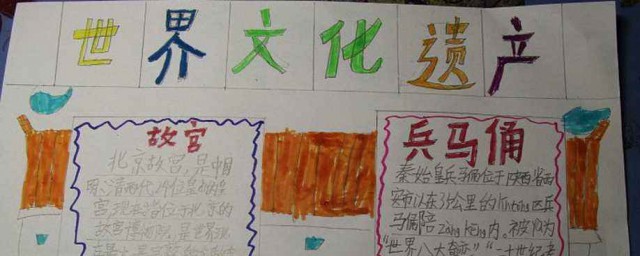 世界文化遗产
故宫
北京故宫,是中国
明、清两代24位皇帝的皇
宫,现在当位于北京的
故宫博物院,是世界现
兵马俑
秦始皇兵马俑位于陕西省西
安市以东31公里的lintóng区兵
马俑陪zàng kēng内。被称为
"世界八大奇迹""二十世纪考